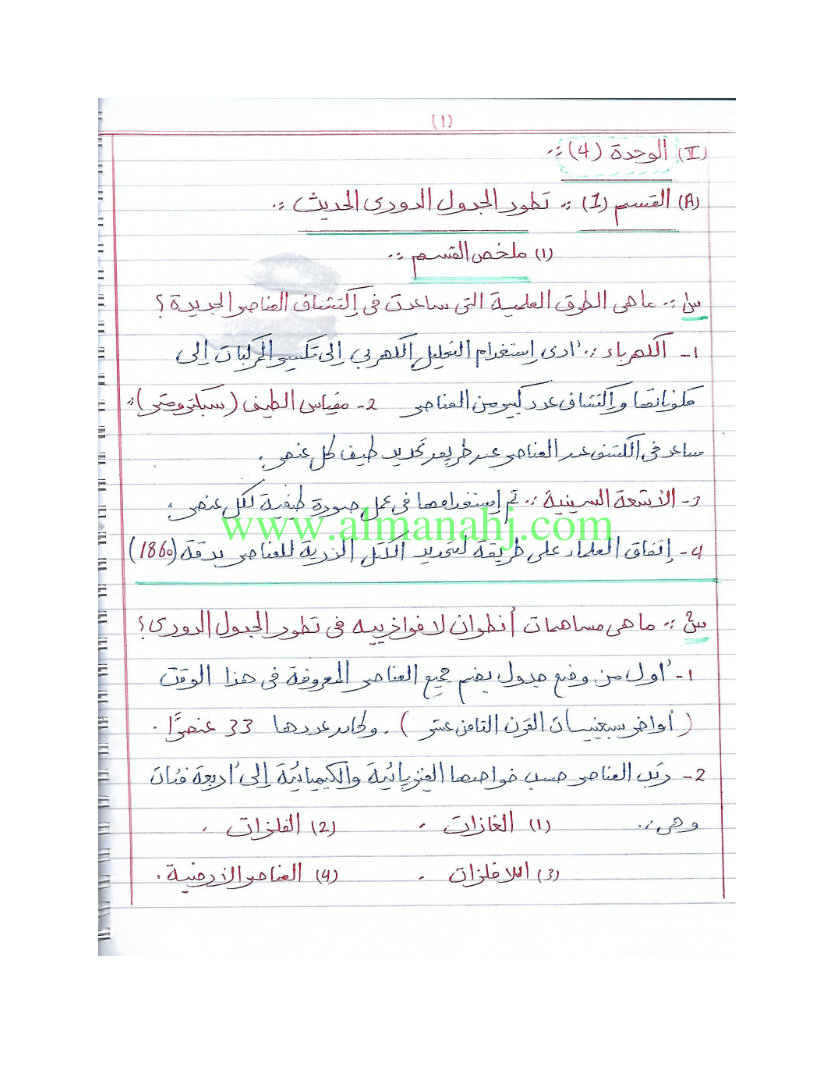 (1)
(II) الوحدة (4) :.
(A) القسم (1) :. تطور الجدول الدوري الحديث :.
(1) ملخص القسم :.
س1 :. ما هي الطرق العلمية التي ساعدت في إكتشاف العناصر الجديدة ؟
1- الكهرباء :. أدى إستخدام التحليل الكهربي إلى تكسير المركبات إلى
مكوناتها وإكتشاف عدد كبير من العناصر 2- مقياس الطيف (سبكترومتر) :.
ساعد في الكشف عن العناصر عن طريق تحديد طيف كل عنصر .
3- الأشعة السينية :. تم إستخدامها في عمل صورة طيفية لكل عنصر .
www.almanahj.com
4- إتفاق العلماء على طريقة لتحديد الكتل الذرية للعناصر بدقة (1860)
س2 :. ما هي مساهمات أنطوان لافوازييه في تطور الجدول الدوري ؟
1- أول من وضع جدول يضم جميع العناصر المعروفة في هذا الوقت
( أواخر سبعينيات القرن الثامن عشر ) . وكان عددها 33 عنصرًا .
2- رتب العناصر حسب خواصها الفيزيائية والكيميائية إلى أربعة فئات
وهي :. (1) الغازات . (2) الفلزات .
(3) اللافلزات . (4) العناصر الأرضية .